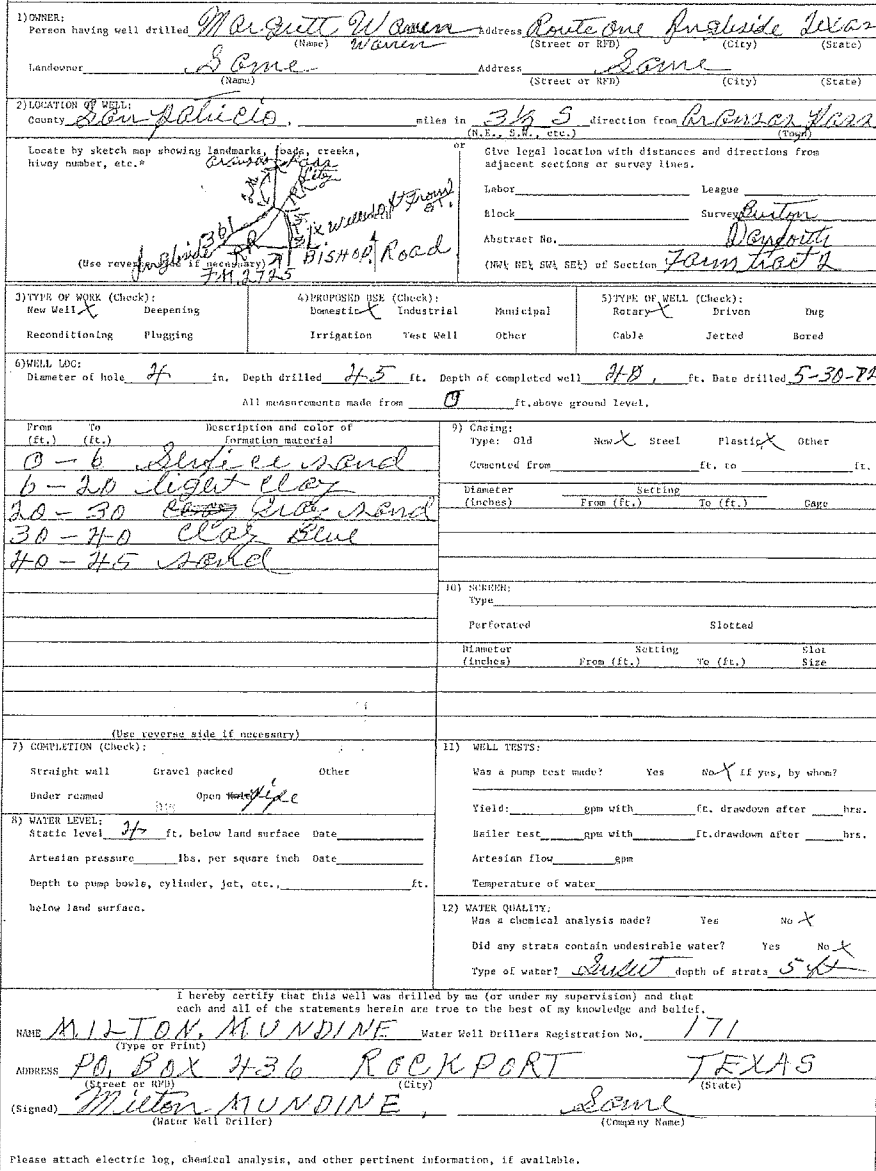 1)OWNER:
Person having well drilled Margrett Warren Address Route One Ingleside Texas
(Name) Warren (Street or RFD) (City) (State)
Landowner Same Address Same
(Name) (Street or RFD) (City) (State)
2)LOCATION OF WELL:
County San Patricio, miles in 3½ S direction from Aransas Pass
(N.E., S.W., etc.) (Town)
Locate by sketch map showing landmarks, roads, creeks,
hiway number, etc.*
or
Give legal location with distances and directions from
adjacent sections or survey lines.
Aransas Pass
City
RR
361
Ingleside
RR
BISHOP Road
F.M. 2725
(Use reverse side if necessary)
Labor League
Block Survey Burton
Abstract No. Danforth
(NW¼ NE¼ SW¼ SE¼) of Section Farm tract 2
3)TYPE OF WORK (Check):
New Well X Deepening
Reconditioning Plugging
4)PROPOSED USE (Check):
Domestic X Industrial Municipal
Irrigation Test Well Other
5)TYPE OF WELL (Check):
Rotary X Driven Dug
Cable Jetted Bored
6)WELL LOG:
Diameter of hole 4 in. Depth drilled 45 ft. Depth of completed well ft. Date drilled 5-30-82
All measurements made from 0 ft.above ground level.
From (ft.) To (ft.) Description and color of formation material
0 - 6 Surfice sand
6 - 20 light clay
20 - 30 Gray sand
30 - 40 Clay Blue
40 - 45 sand
(Use reverse side if necessary)
9) Casing:
Type: Old New X Steel Plastic X Other
Cemented from ft. to ft.
Diameter (inches) Setting From (ft.) To (ft.) Gage
10) SCREEN:
Type
Perforated Slotted
Diameter (inches) Setting From (ft.) To (ft.) Slot Size
7) COMPLETION (Check):
Straight wall Gravel packed Other
Under reamed Open Hole Pipe
8) WATER LEVEL:
Static level 4 ft. below land surface Date
Artesian pressure lbs. per square inch Date
Depth to pump bowls, cylinder, jet, etc., ft.
below land surface.
11) WELL TESTS:
Was a pump test made? Yes No X If yes, by whom?
Yield: gpm with ft. drawdown after hrs.
Bailer test gpm with ft.drawdown after hrs.
Artesian flow gpm
Temperature of water
12) WATER QUALITY:
Was a chemical analysis made? Yes No X
Did any strata contain undesirable water? Yes No X
Type of water? depth of strata 5 ft
I hereby certify that this well was drilled by me (or under my supervision) and that
each and all of the statements herein are true to the best of my knowledge and belief.
NAME MILTON, MUNDINE Water Well Drillers Registration No. 171
(Type or Print)
ADDRESS PO. BOX 436 ROCKPORT TEXAS
(Street or RFD) (City) (State)
(Signed) Milton MUNDINE, Same
(Water Well Driller) (Company Name)
Please attach electric log, chemical analysis, and other pertinent information, if available.